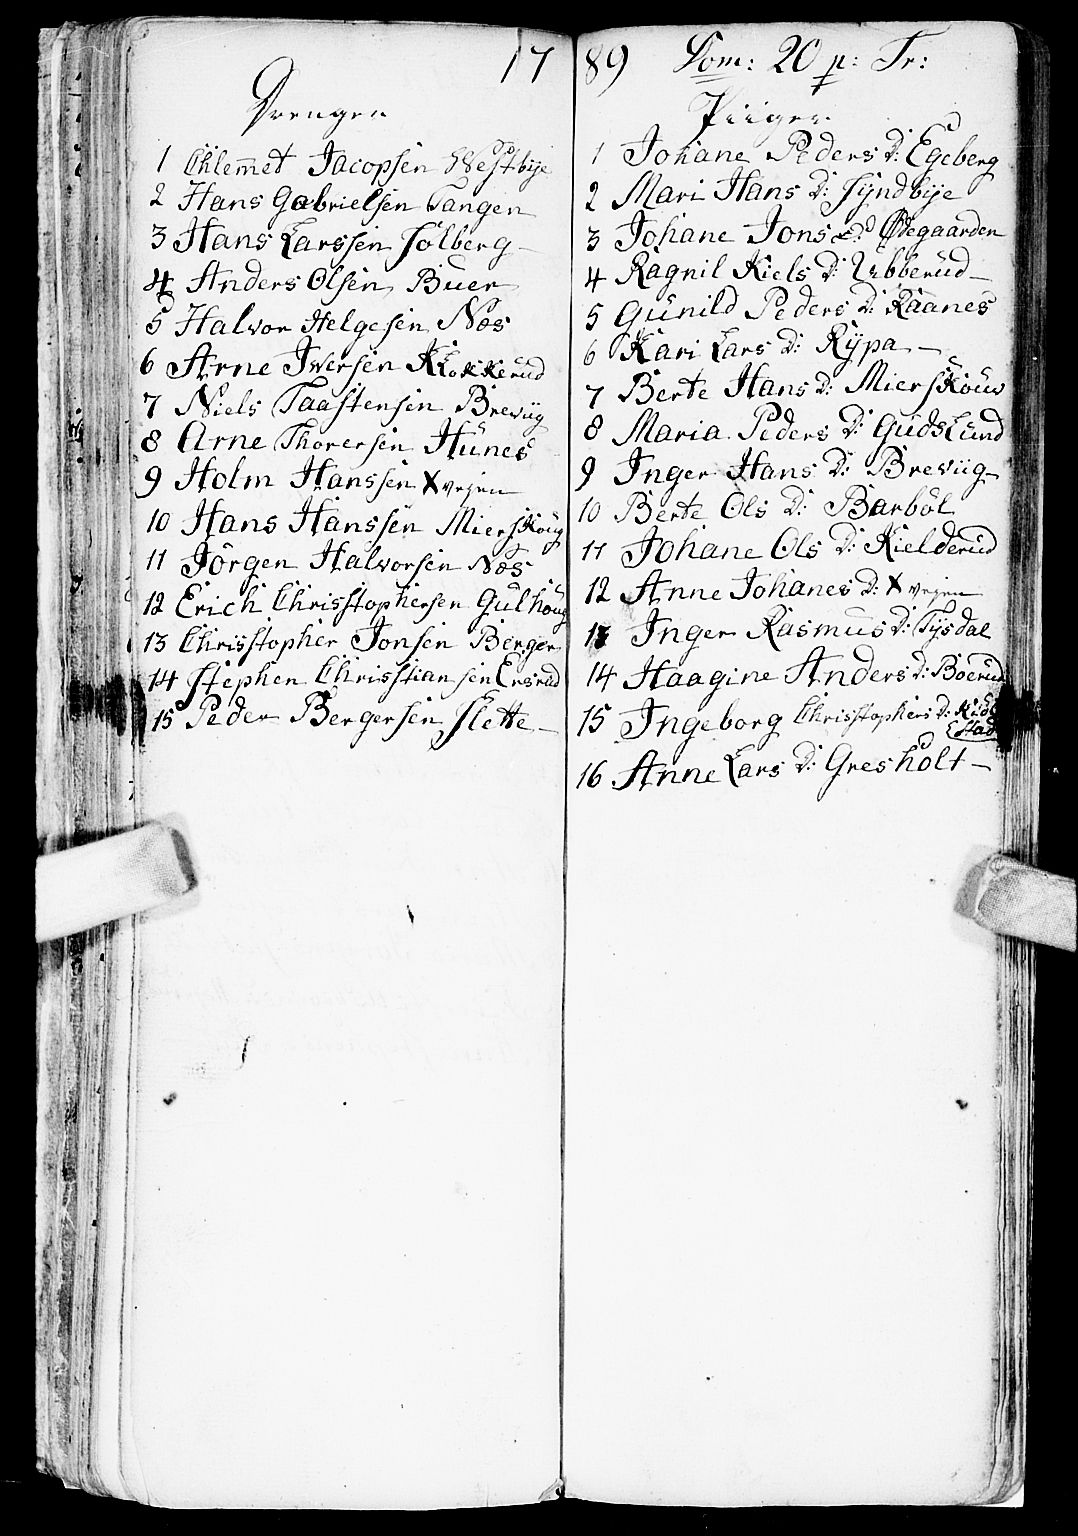 1789 Dom: 20 p: Tr:
Drengen
1 Chlemmet Jacopsen Westbije
2 Hans Gabrielsen Tangen
3 Hans Larssen Solberg
4 Anders Olsen Buer
5 Halvor Helgesen Næs
6 Arne Iversen Klokkerud
7 Niels Taastensen Breviig
8 Arne Thorersen Hunes
9 Holm Hanssen Xvejen
10 Hans Hanssen Mierskoug
11 Jörgen Halvorsen Næs
12 Erich Christophersen Gulhoug
13 Christopher Jonsen Berger
14 Stephen Christiansen Ersrud
15 Peder Bergersen Slette
Piigen
1 Johane Peders D: Egeberg
2 Mari Hans D: Syndbije
3 Johane Jons D: Ødegaarden
4 Ragnil Kiels D: Ubberud
5 Gunild Peders D: Raanes
6 Kari Lars D: Rypa
7 Berte Hans D: Mierskouv
8 Maria Peders D: Gudslund
9 Inger Hans D: Breviig
10 Berte Ols D: Barböl
11 Johane Ols D: Kielderud
12 Anne Johanes D: Xvejen
13 Inger Rasmus D: Tysdal
14 Haagine Anders D: Boerud
15 Ingeborg Christophers D:
16 Anne Lars D: Gresholt